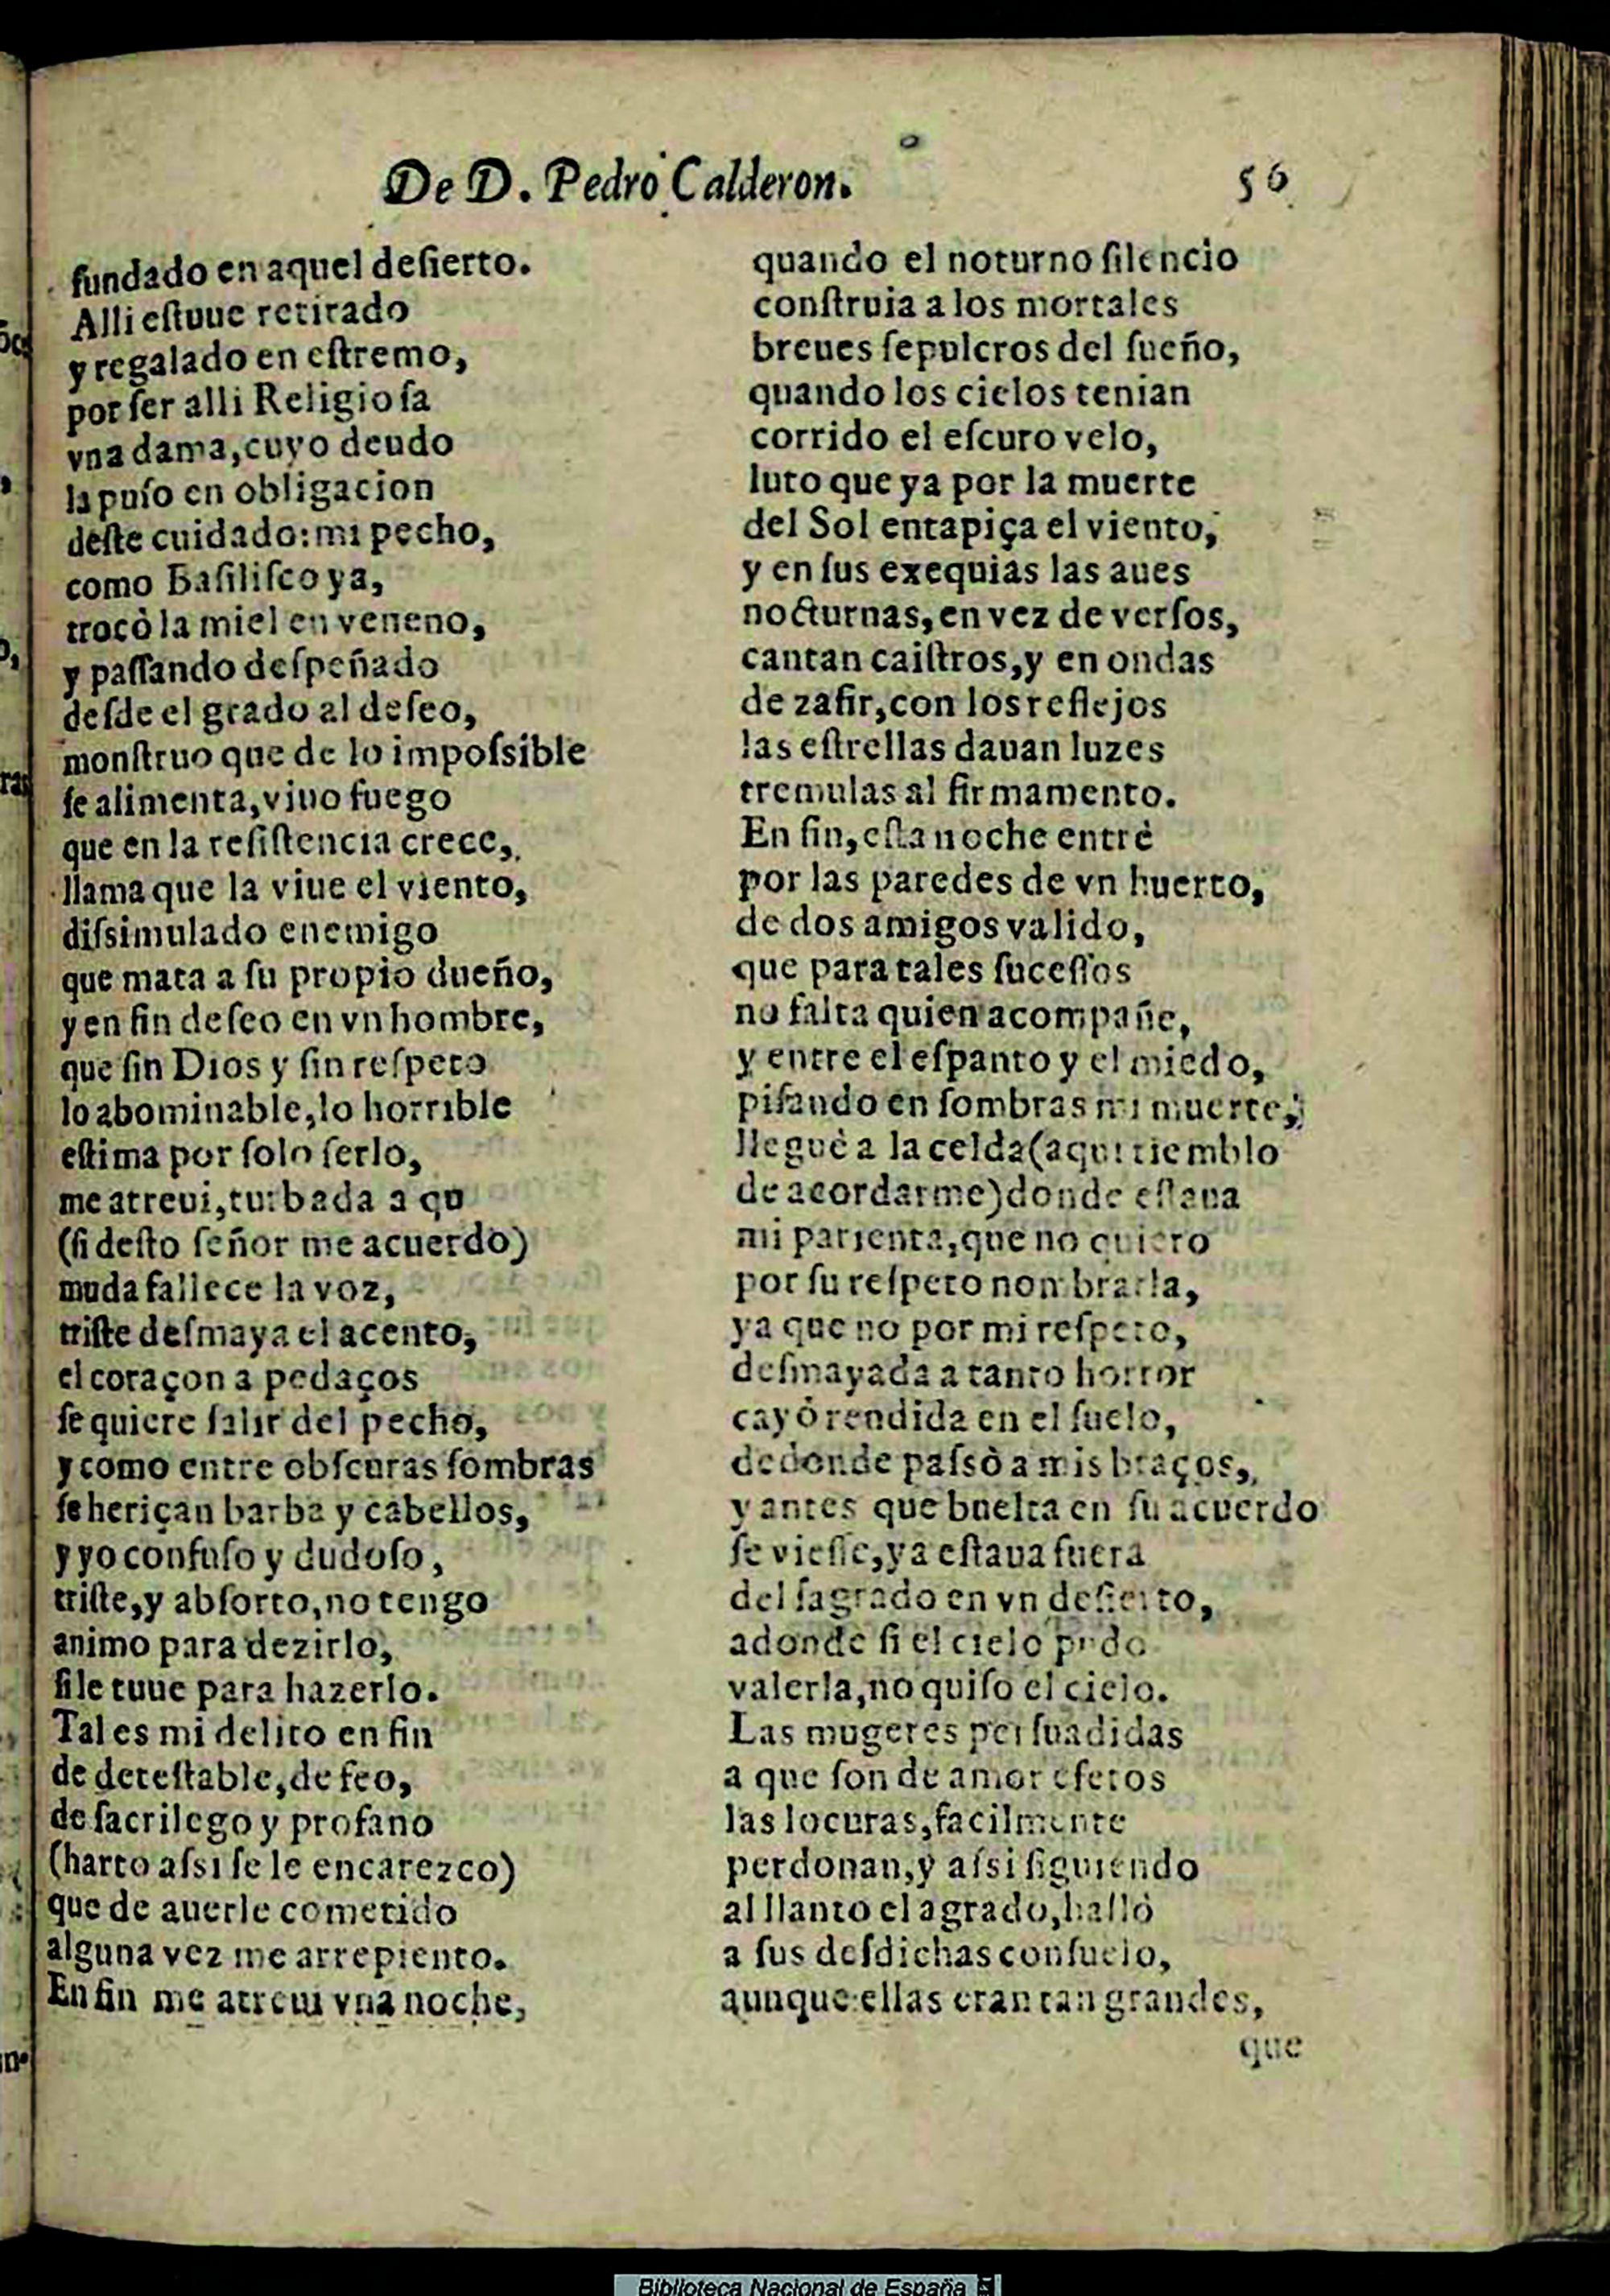 De D. Pedro Calderon.
56
fundado en aquel deſierto.
Alli eſtuue retirado
y regalado en eſtremo,
por ſer alli Religioſa
vna dama, cuyo deudo
la puſo en obligacion
deſte cuidado: mi pecho,
como Baſiliſco ya,
trocò la miel en veneno,
y paſſando deſpeñado
deſde el grado al deſeo,
monſtruo que de lo impoſsible
ſe alimenta, viuo fuego
que en la reſiſtencia crece,
llama que la viue el viento,
diſsimulado enemigo
que mata a ſu propio dueño,
y en fin deſeo en vn hombre,
que ſin Dios y ſin reſpeto
lo abominable, lo horrible
eſtima por ſolo ſerlo,
me atreui, turbada a qu
(ſi deſto ſeñor me acuerdo)
muda fallece la voz,
triſte deſmaya el acento,
el coraçon a pedaços
ſe quiere ſalir del pecho,
y como entre obſcuras ſombras
ſe heriçan barba y cabellos,
y yo confuſo y dudoſo,
triſte, y abſorto, no tengo
animo para dezirlo,
ſi le tuue para hazerlo.
Tal es mi delito en fin
de deteſtable, de feo,
de ſacrilego y profano
(harto aſsi ſe le encarezco)
que de auerle cometido
alguna vez me arrepiento.
En fin me atreui vna noche,
quando el noturno ſilencio
conſtruia a los mortales
breues ſepulcros del ſueño,
quando los cielos tenian
corrido el eſcuro velo,
luto que ya por la muerte
del Sol entapiça el viento,
y en ſus exequias las aues
nocturnas, en vez de verſos,
cantan caiſtros, y en ondas
de zafir, con los reflejos
las eſtrellas dauan luzes
tremulas al firmamento.
En fin, eſta noche entrè
por las paredes de vn huerto,
de dos amigos valido,
que para tales ſuceſſos
no falta quien acompañe,
y entre el eſpanto y el miedo,
piſando en ſombras mi muerte,
lleguè a la celda (aqui tiemblo
de acordarme) donde eſtaua
mi parienta, que no quiero
por ſu reſpeto nombrarla,
ya que no por mi reſpeto,
deſmayada a tanto horror
cayò rendida en el ſuelo,
de donde paſsò a mis braços,
y antes que buelta en ſu acuerdo
ſe vieſſe, ya eſtaua fuera
del ſagrado en vn deſierto,
adonde ſi el cielo pudo
valerla, no quiſo el cielo.
Las mugeres perſuadidas
a que ſon de amor efetos
las locuras, facilmente
perdonan, y aſsi ſiguiendo
al llanto el agrado, hallò
a ſus deſdichas conſuelo,
aunque ellas eran tan grandes,
que
Biblioteca Nacional de España